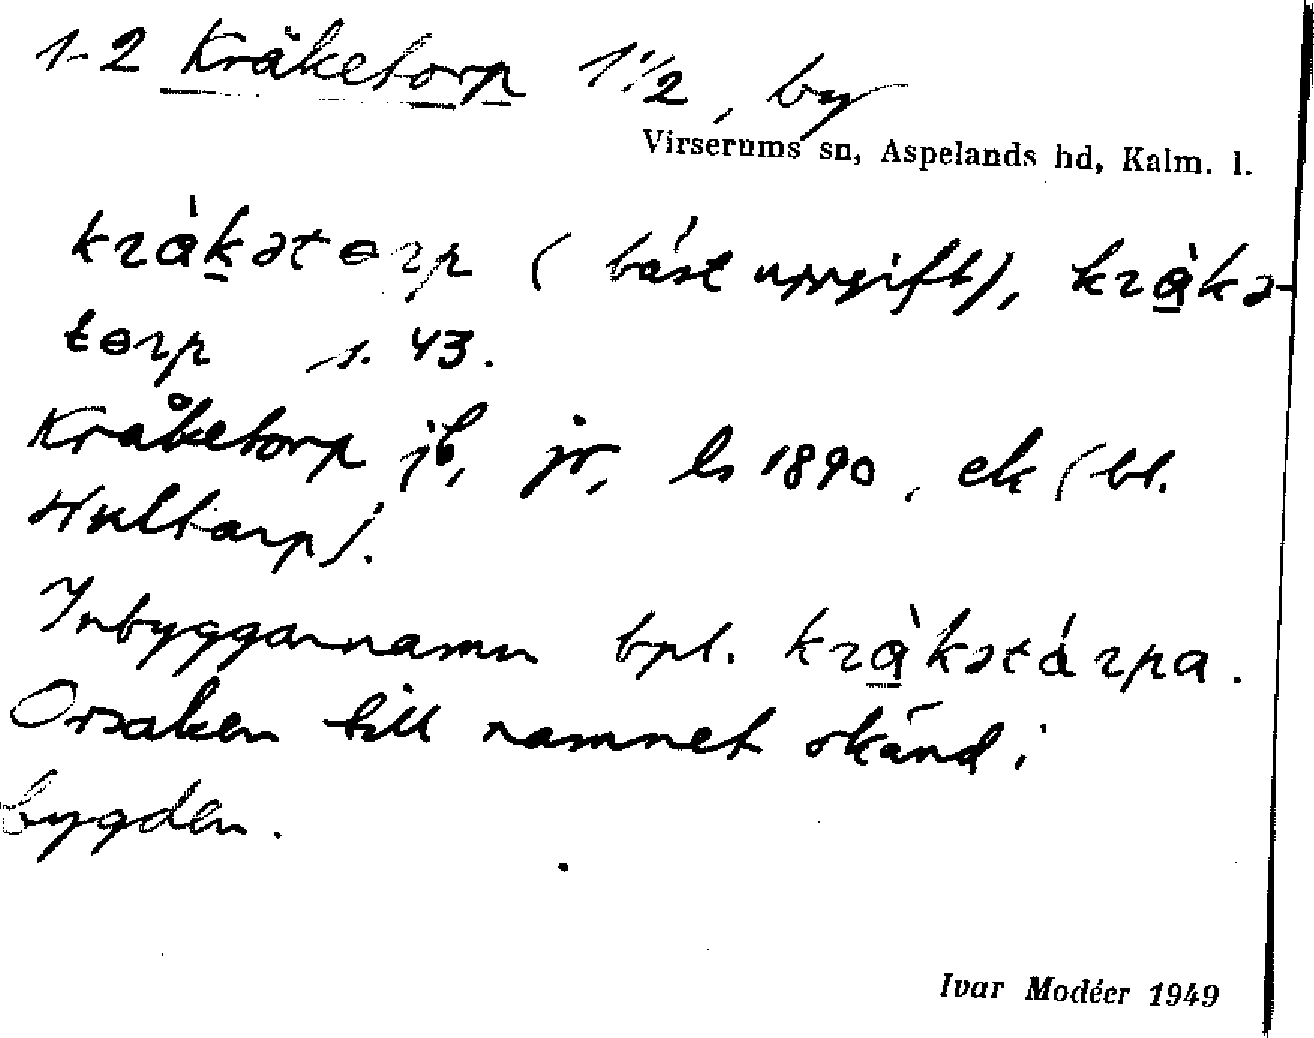 1-2 Kråketorp 1 1/2, by
Virserums sn, Aspelands hd, Kalm. l.
kràkətɵrp (bäst uppgift), kràkə-
tɵrp s. 43.
Kråketorp jb, jr, ls 1890, ek (bl.
Hultarp).
Inbyggarnamn bpl. kràkətárpa.
Orsaken till namnet okänd i
bygden.
Ivar Modéer 1949